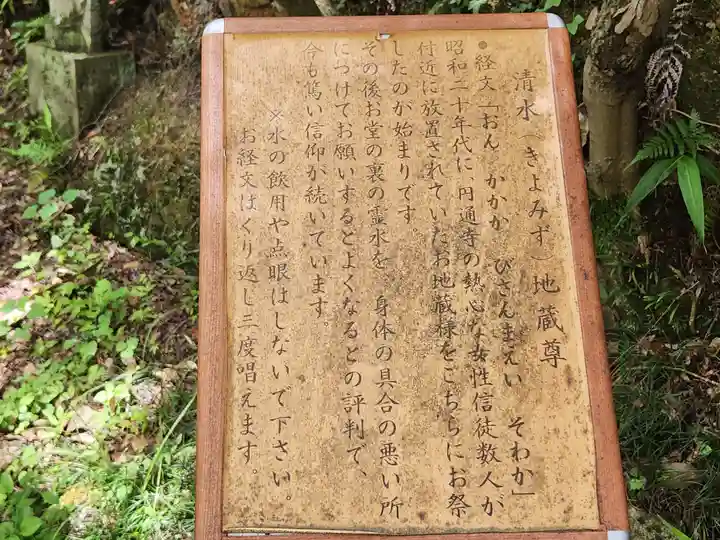 清水(きよみず)地蔵尊
●経文「おん かかか びさんまえい そわか」
昭和二十年代に、円通寺の熱心な女性信徒数人が
付近に放置されていたお地蔵様をこちらにお祭
したのが始まりです。
その後お堂の裏の霊水を、身体の具合の悪い所
につけてお願いするとよくなるとの評判で、
今も篤い信仰が続いています。
※水の飲用や点眼はしないで下さい。
お経文はくり返し三度唱えます。